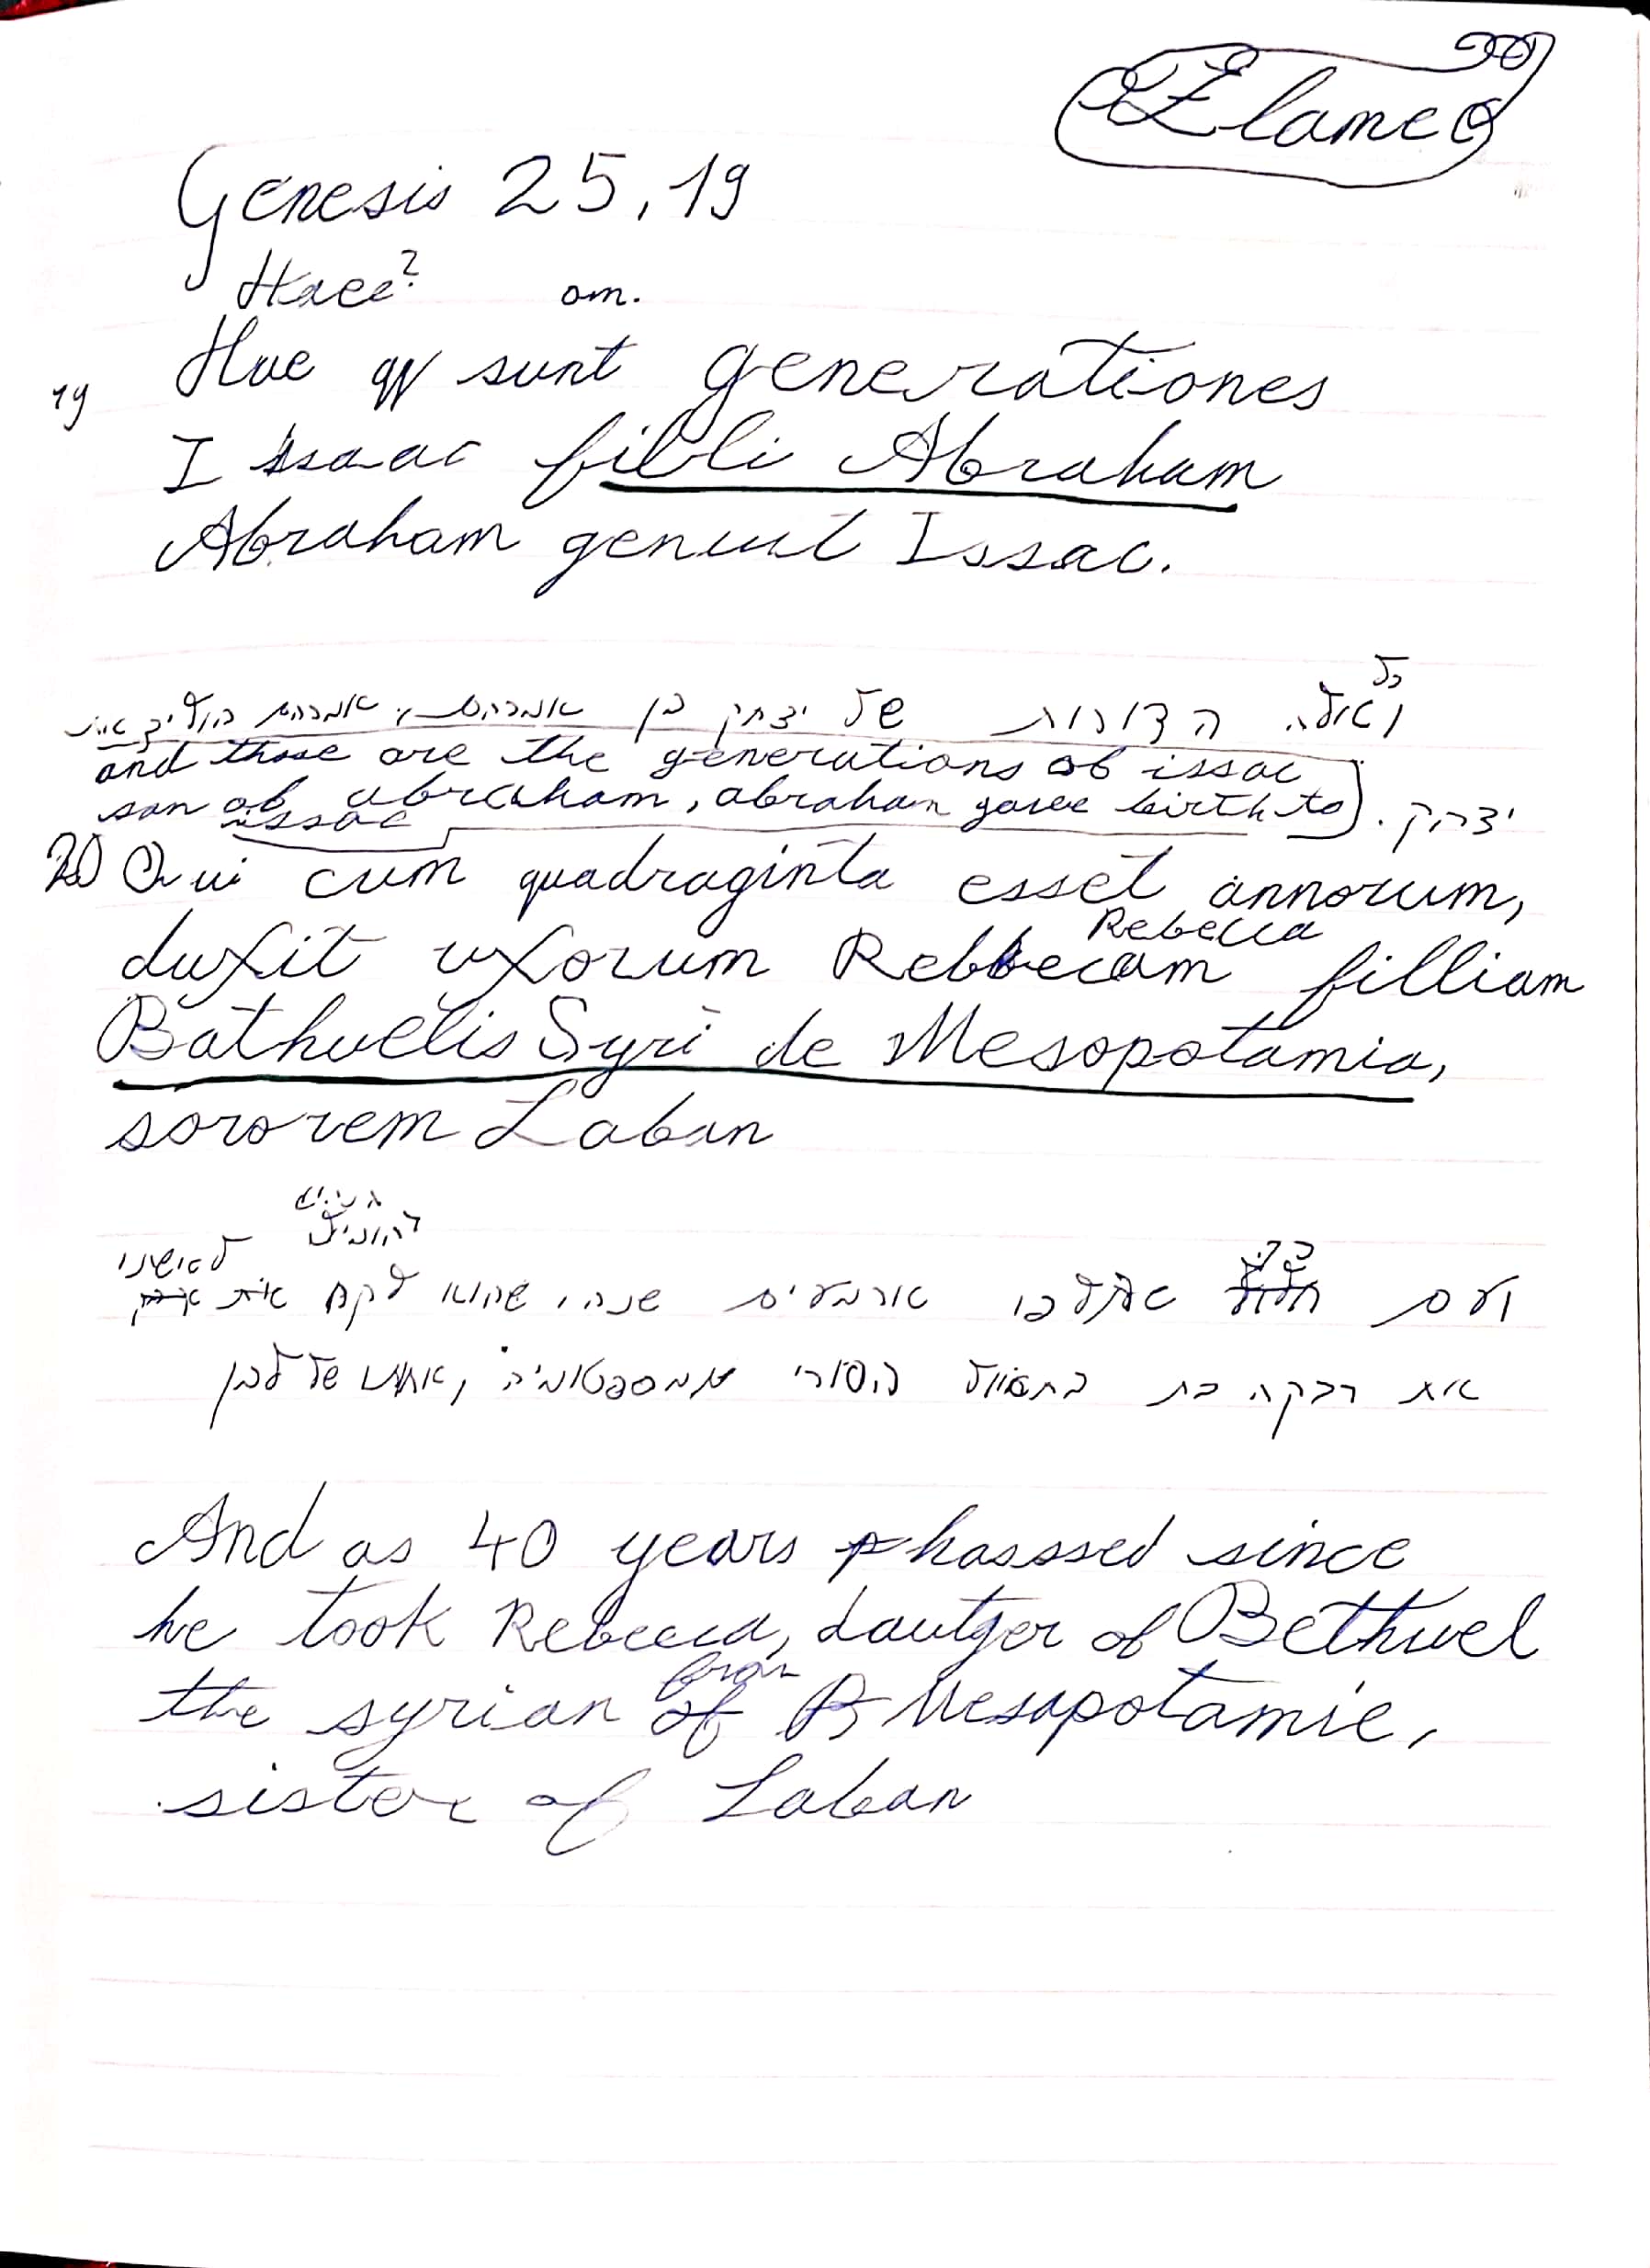 Elamec
Genesis 25,19
Haec? om.
19 Hae sunt generationes
Isaac filii Abraham
Abraham genuit Issac.
כל
ואלה הדורות של יצחק בן אברהם, אברהם הוליד את
and those are the generations of issac
son of abraham, abraham gave birth to
issac
יצחק.
20 Qui cum quadraginta esset annorum,
Rebecca
duxit uxorum Rebbecam filliam
Bathuelis Syri de Mesopotamia,
sororem Laban
לאישנו
ועם ארבעים שנה, שהוא לקח את
את רבקה בת בתואל הסורי ממספטמיה, אחות של לבן
And as 40 years phasssed since
he took Rebecca, dautger of Bethuel
from
the syrian of Mesopotamie,
sister of Laban